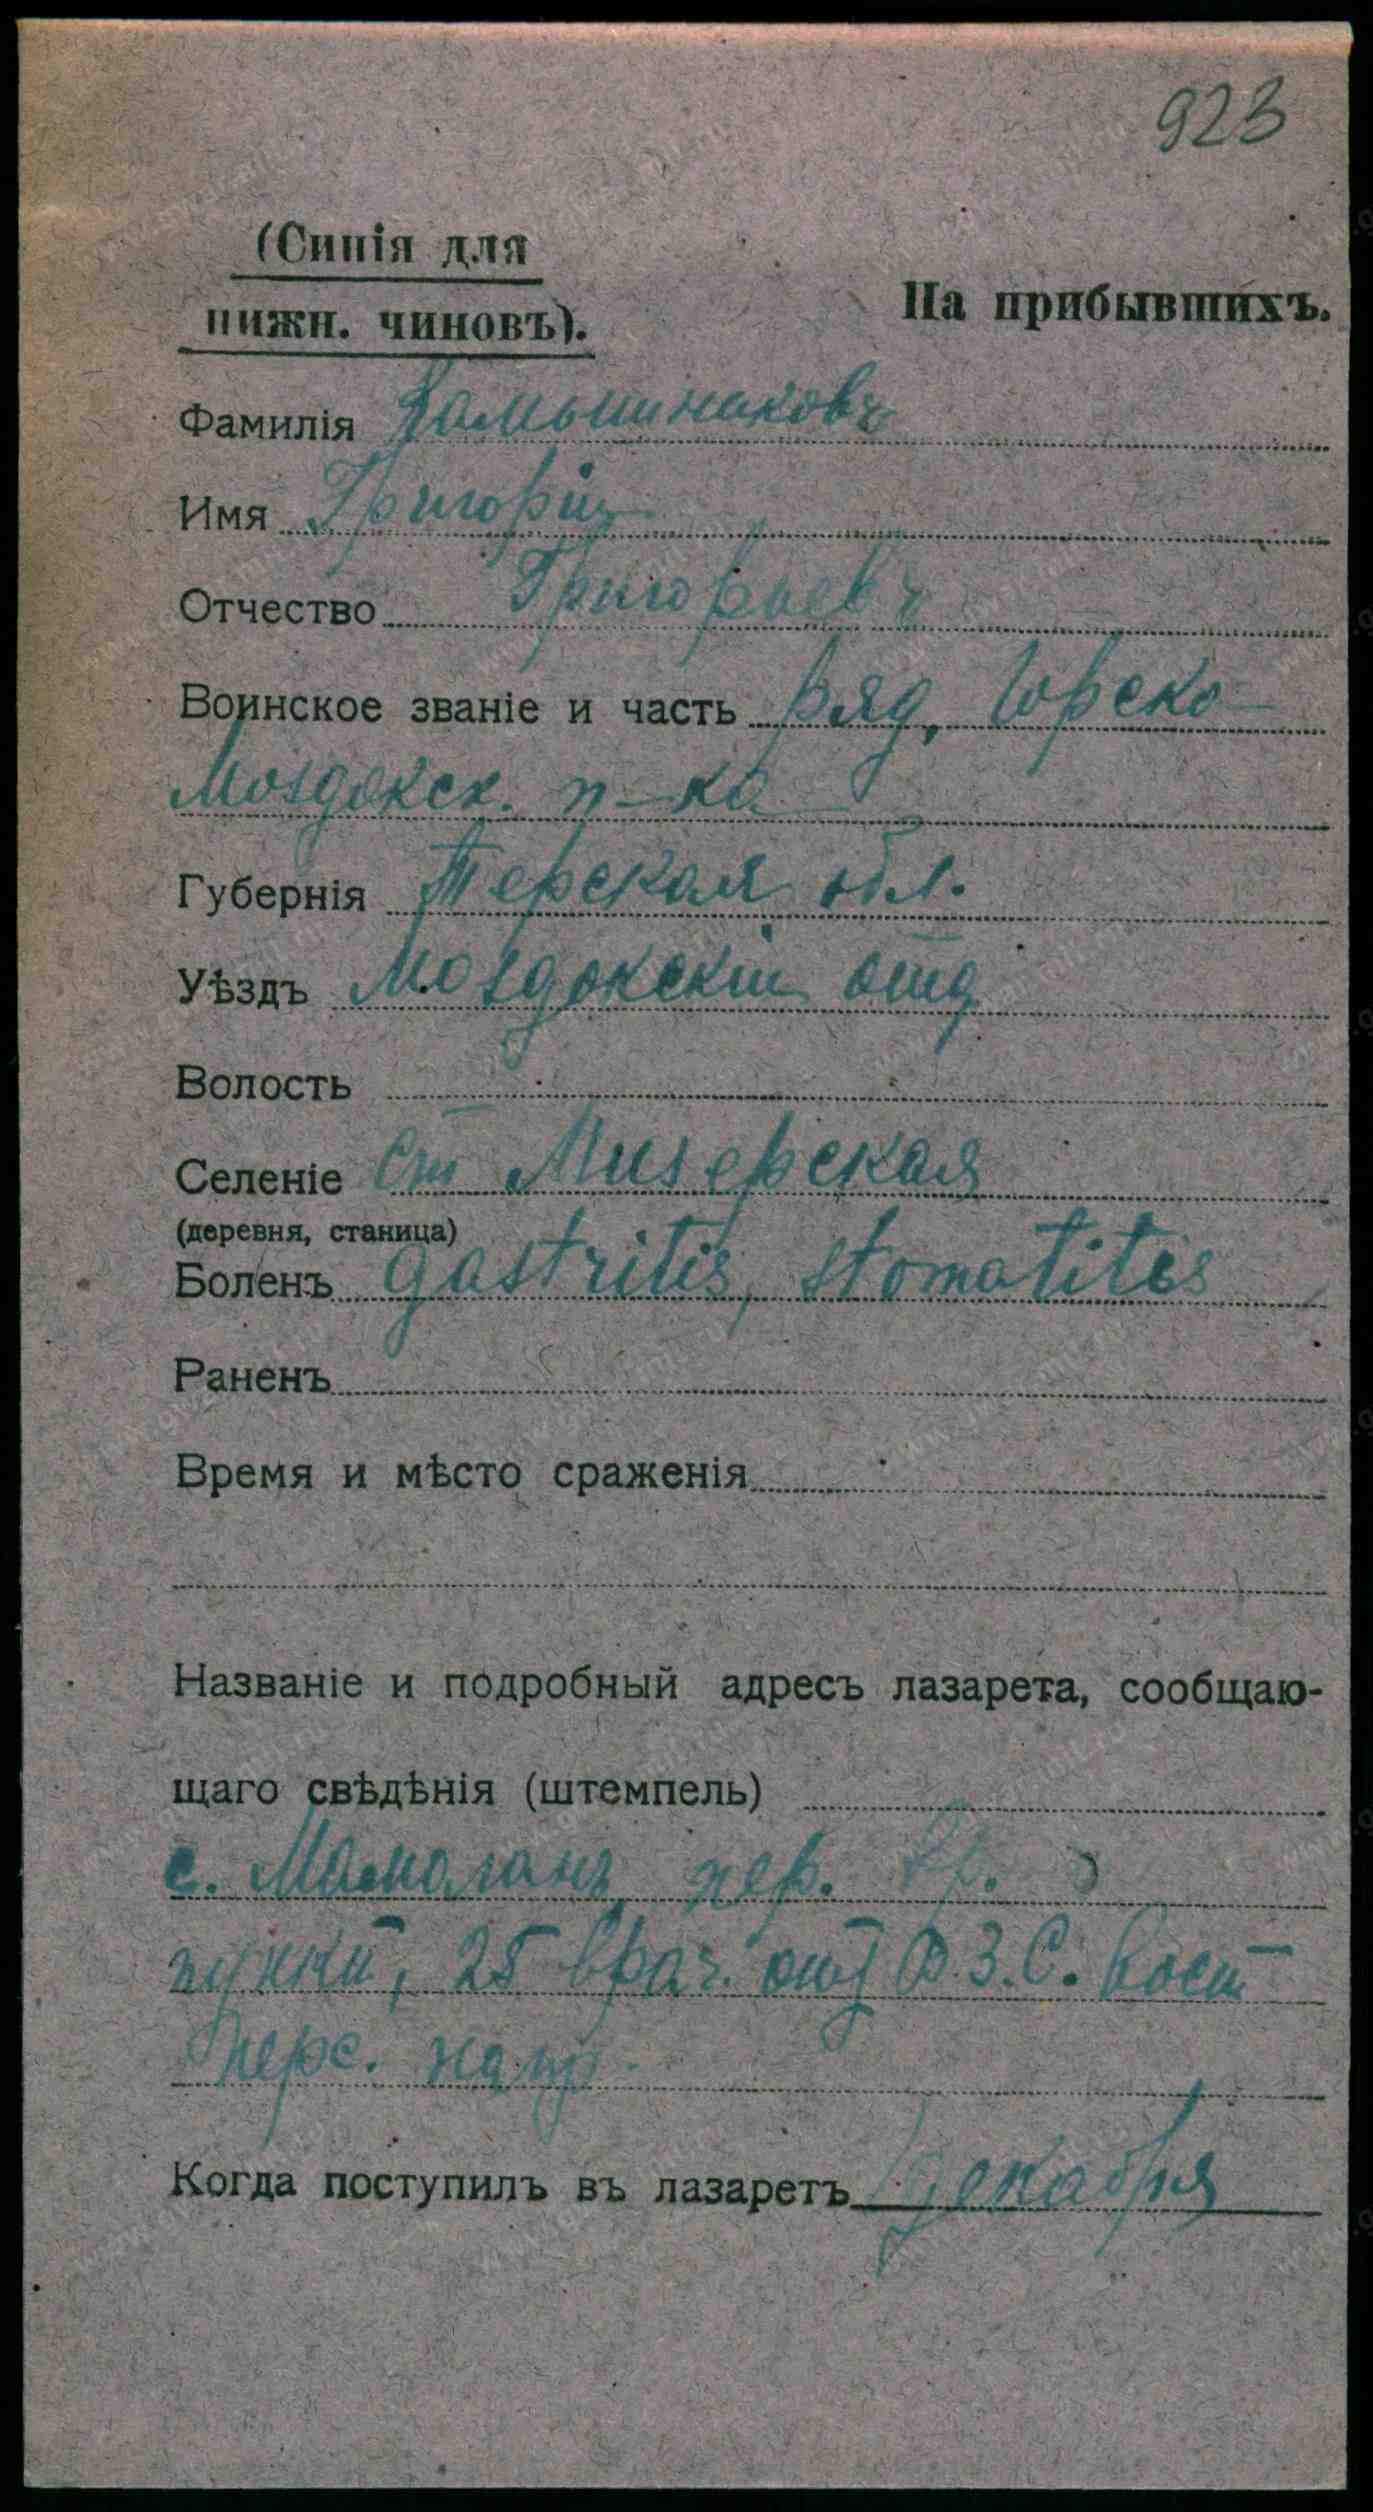 923
(Синія для
нижн. чиновъ).
На прибывшихъ.
Фамилія Камышниковъ
Имя Григорій
Отчество Григорьевъ
Воинское званіе и часть ряд. Горско
Моздокск. п-ка
Губернія Терская обл.
Уѣздъ Моздокскій отд
Волость
Селеніе ст Мизерская
(деревня, станица)
Боленъ gastritis, stomatitis
Раненъ
Время и мѣсто сраженія
Названіе и подробный адресъ лазарета, сообщаю-
щаго свѣдѣнія (штемпель)
с. пер.
пункт, 25 врач. отд В.З.С. Вост
Перс. напр.
Когда поступилъ въ лазаретъ декабря